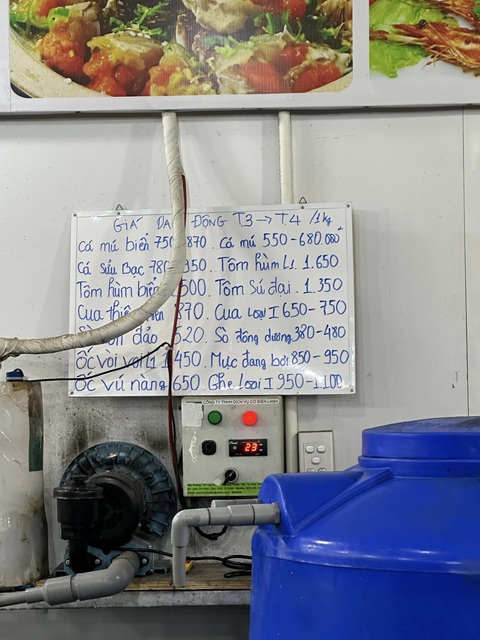 GIÁ DAO ĐỘNG T3 → T.4 /1kg
Cá mú biển 750 870. Cá mú 550-680.000đ
Cá sửu Bạc 780 950. Tôm hùm L1. 1.650
Tôm hùm 500. Tôm Sú đại. 1.350
Cua 870. Cua Loại I 650-750
đảo 520. Sò đông dương 380-480
Ốc vòi voi L1 450. Mực đang bơi 850-950
Ốc vú nàng 650. Ghẹ Loại I 950-1.100
CÔNG TY TNHH DỊCH VỤ CƠ ĐIỆN LẠNH
23